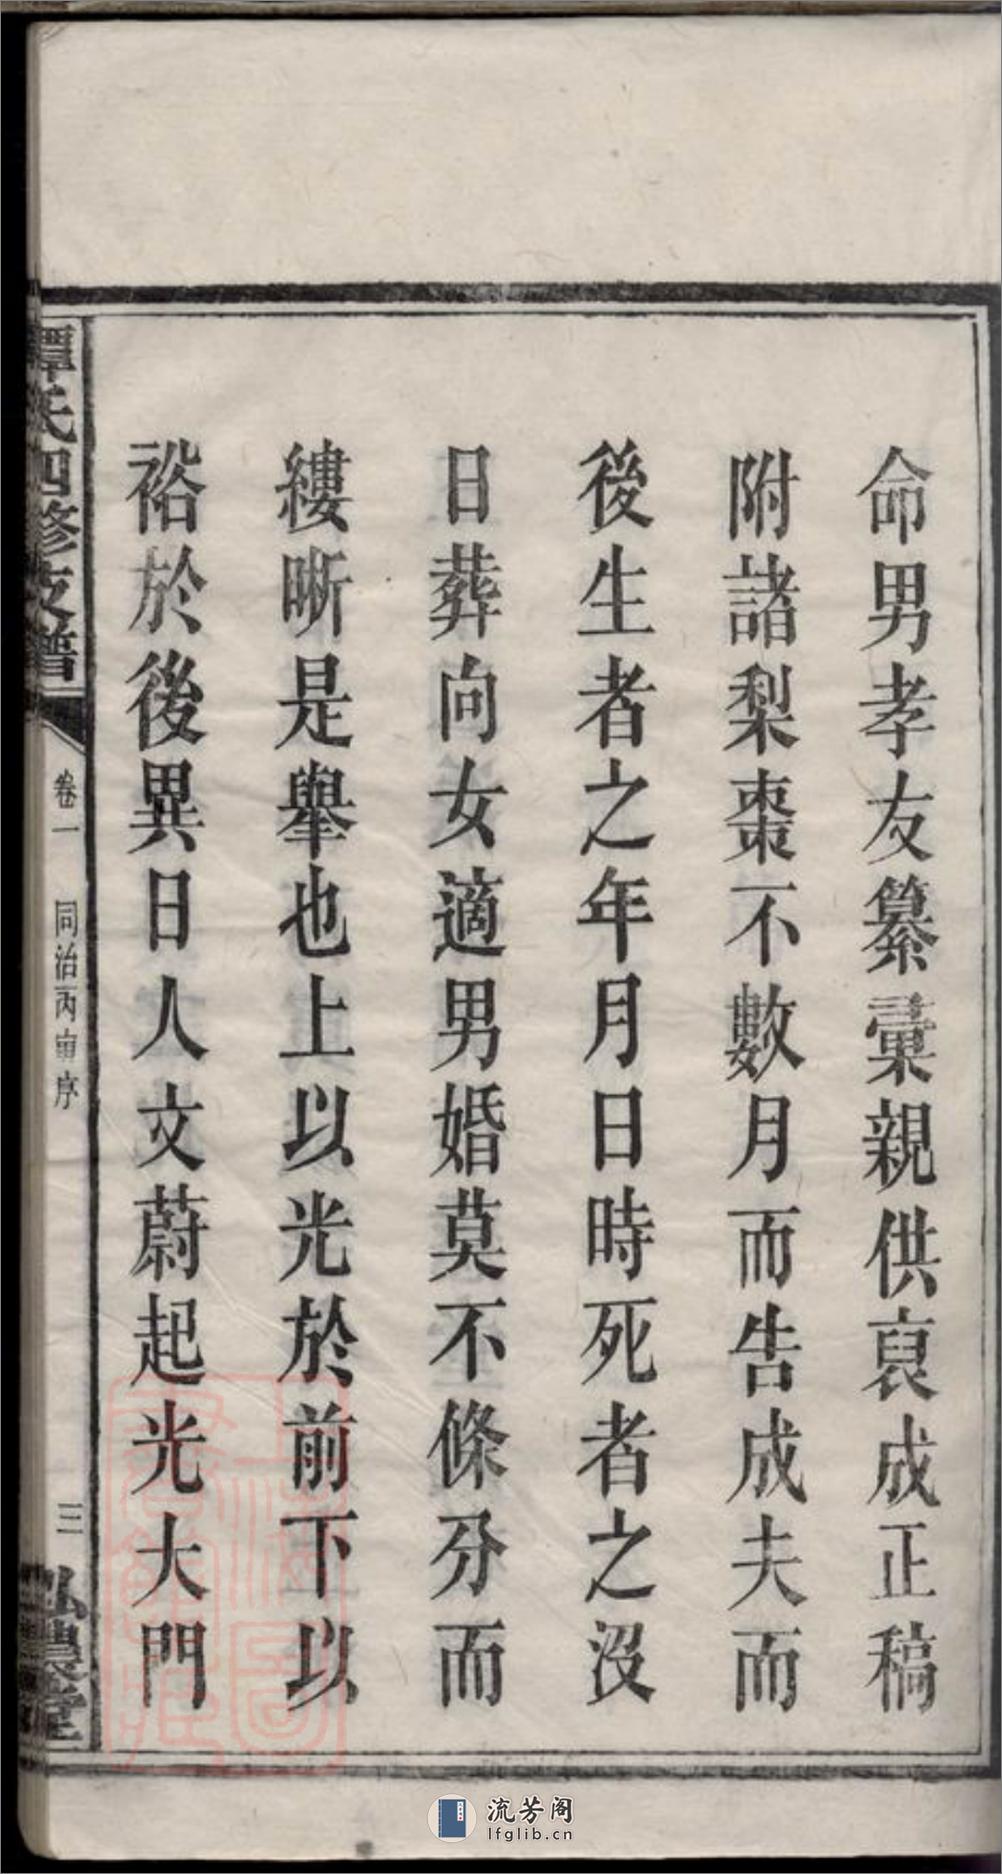 命男孝友纂彙親供裒成正稿
附諸梨棗不數月而告成夫而
後生者之年月日時死者之沒
日葬向女適男婚莫不條分而
縷晰是舉也上以光於前下以
裕於後異日人文蔚起光大門
譚氏四修支譜
卷一
同治丙寅序
三
弘農堂
上海圖書館藏
流芳阁
lfglib.cn